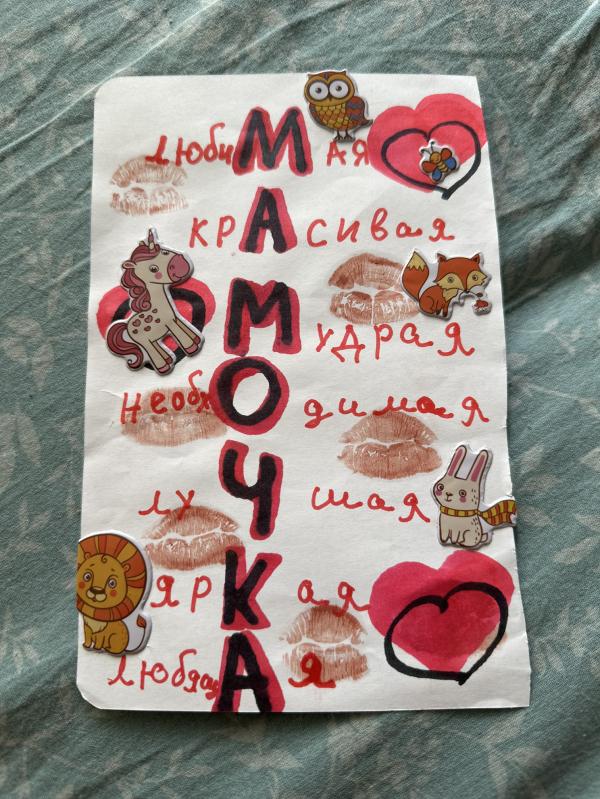 любиМАЯ
кРАсивая
Мудрая
необхОдимая
луЧшая
ярКая
любящАя